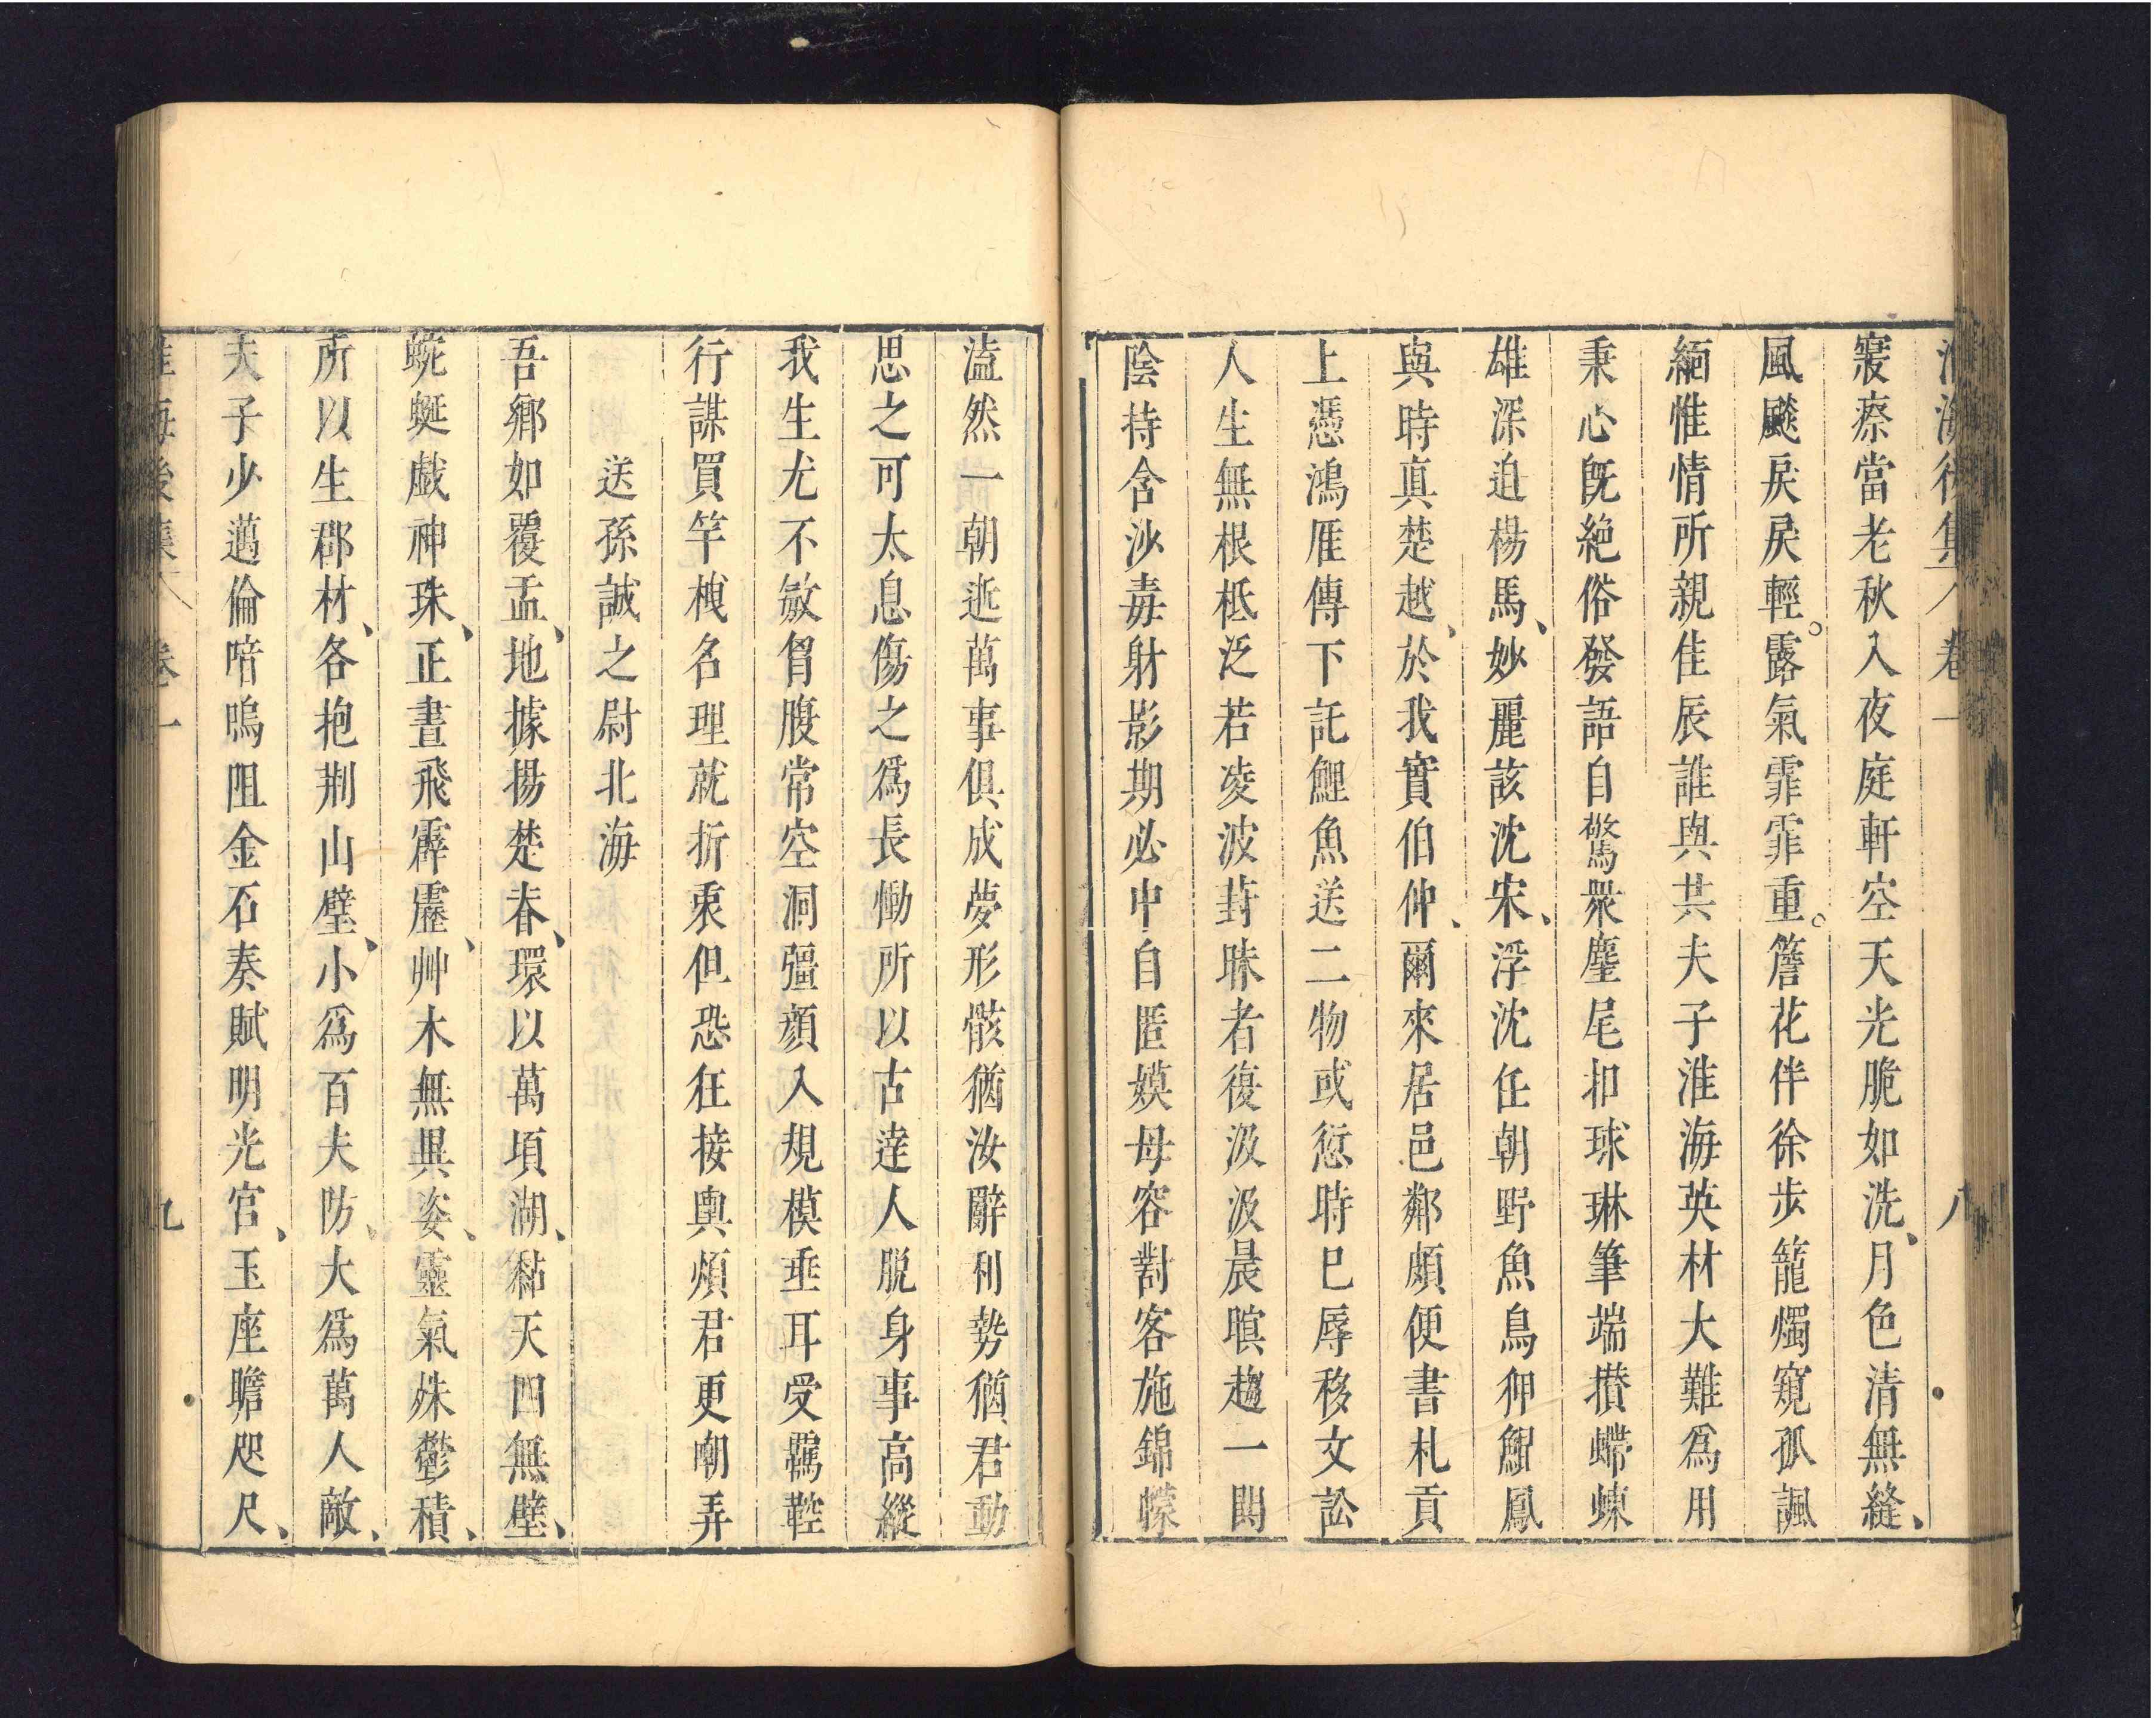 淮海後集 卷一 八
寢瘵當老秋入夜庭軒空天光脆如洗、月色清無縫、
風颷戾戾輕。露氣霏霏重。簷花伴徐步籠燭窺孤諷
緬惟情所親佳辰誰與共夫子淮海英材大難爲用
秉心既絶俗發語自驚衆塵尾扣球琳筆端攢螮蝀
雄深迫楊馬、妙麗該沈宋、浮沈任朝野魚鳥狎鯤鳳
與時真楚越、於我實伯仲、爾來居邑鄰頗便書札貢
上憑鴻雁傳下託鯉魚送二物或愆時已辱移文訟
人生無根柢泛若凌波葑昧者復汲汲晨暝趨一閧
陰持含沙毒射影期必中自匿嫫母容對客施錦幪
溘然一朝逝萬事俱成夢形骸猶汝辭利勢猶君動
思之可太息傷之爲長慟所以古達人脱身事高縱
我生尤不敏胷腹常空洞彊顔入規模垂耳受羈鞚
行謀買竿栧名理就折衷但恐狂接輿煩君更嘲弄
送孫誠之尉北海
吾鄉如覆盂、地據揚楚春、環以萬頃湖、黏天四無壁、
蜿蜒戲神珠、正晝飛霹靂、艸木無異姿、靈氣殊鬱積、
所以生郡材、各抱荆山璧、小爲百夫防、大爲萬人敵、
夫子少邁倫喑嗚阻金石奏賦明光宫、玉座瞻咫尺、
淮海後集 卷一 九